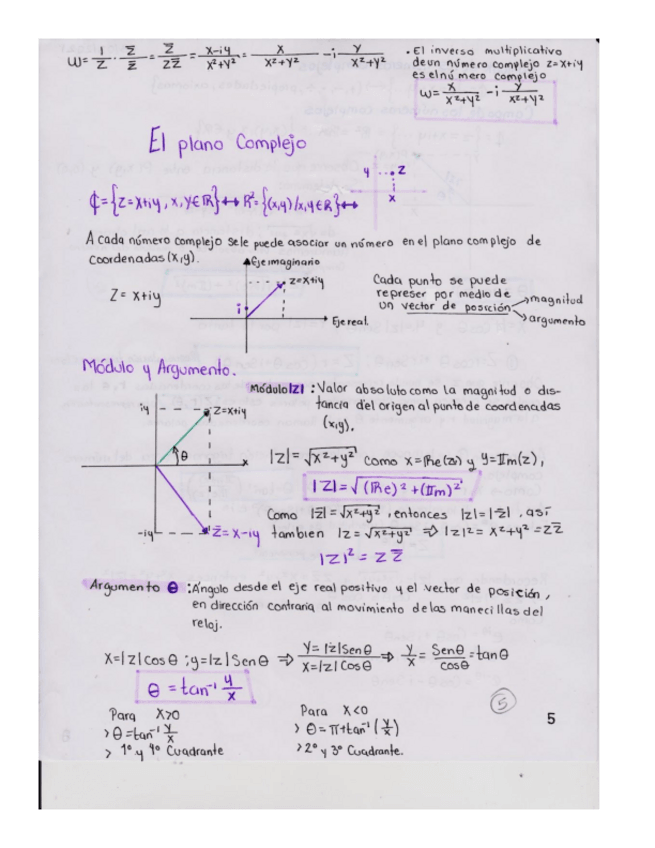 W= 1/Z · Z̅/Z̅ = Z̅/ZZ̅ = x-iy/x²+y² = x/x²+y² - i y/x²+y²
· El inverso multiplicativo
de un número complejo z=x+iy
es el nú mero complejo
W= x/x²+y² - i y/x²+y²
El plano Complejo
y z
x
ℂ={Z=x+iy, x,y∈ℝ}↔ℝ²={(x,y)/x,y∈ℝ}↔
A cada número complejo se le puede asociar un número en el plano complejo de
coordenadas (x,y).
Eje imaginario
Z=x+iy
i
Eje real
Z= x+iy
Cada punto se puede
represer por medio de
un vector de posición
magnitud
argumento
Módulo y Argumento.
Módulo |Z| : Valor absoluto como la magnitud o dis-
tancia del origen al punto de coordenadas
(x,y).
iy
Z=x+iy
θ
x
-iy
Z̅= x-iy
|Z|=√x²+y² como x=ℝe(z) y y=𝕀m(z),
|Z|=√(ℝe)²+(𝕀m)²
Como |z̅|=√x²+y², entonces |z|=|z̅|, así
tambien |z=√x²+y² ⇒ |z|²= x²+y²=ZZ̅
|Z|² = Z Z̅
Argumento θ : Ángulo desde el eje real positivo y el vector de posición,
en dirección contraria al movimiento de las manecillas del
reloj.
X=|z|Cosθ ; y=|z|Senθ ⇒ Y=|z|Senθ/X=|z|Cosθ ⇒ y/x = Senθ/cosθ = tanθ
θ = tan⁻¹ y/x
Para X>0
> θ=tan⁻¹ y/x
> 1° y 4° Cuadrante
Para X<0
> θ= π+tan⁻¹(y/x)
> 2° y 3° Cuadrante.
5
5